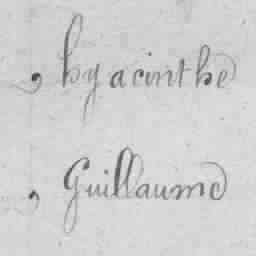 , hyacinthe
, Guillaume